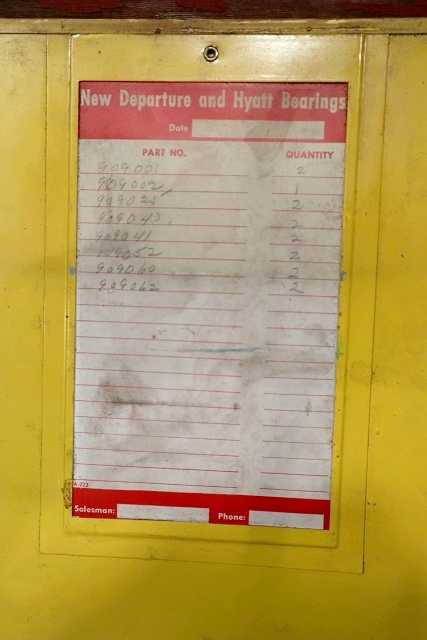 New Departure and Hyatt Bearings
Date
PART NO. QUANTITY
909001 2
909002 1
909025 2
909043 2
909041 2
909052 2
909060 2
909062 2
A-223
Salesman: Phone: